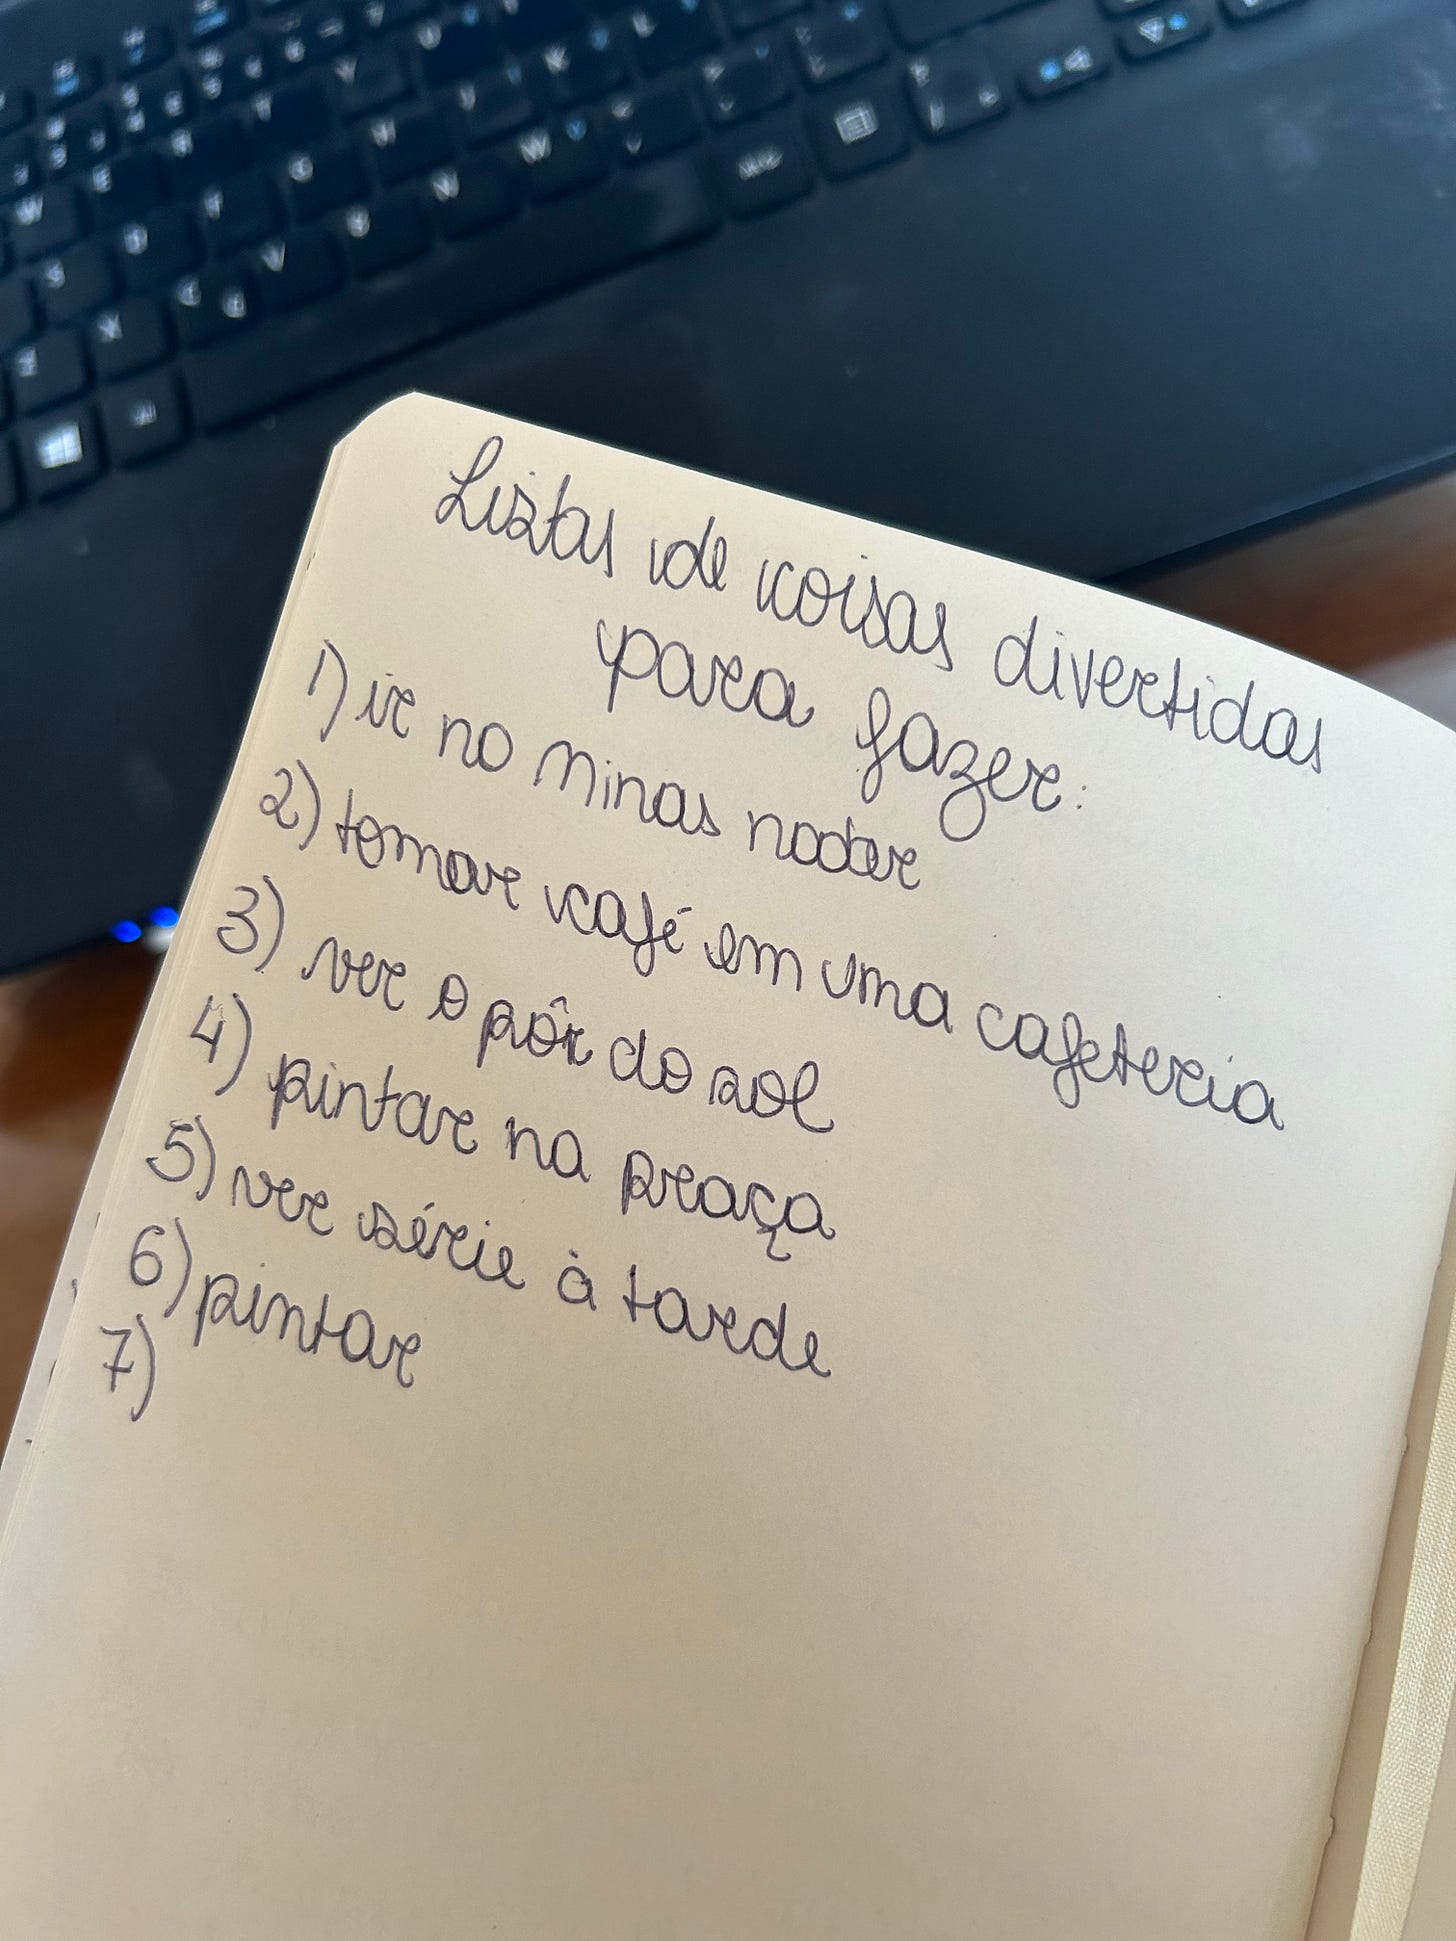 Listas de coisas divertidas
para fazer:
1) ir no Minas nadar
2) tomar café em uma cafeteria
3) ver o pôr do sol
4) pintar na praça
5) ver série à tarde
6) pintar
7)